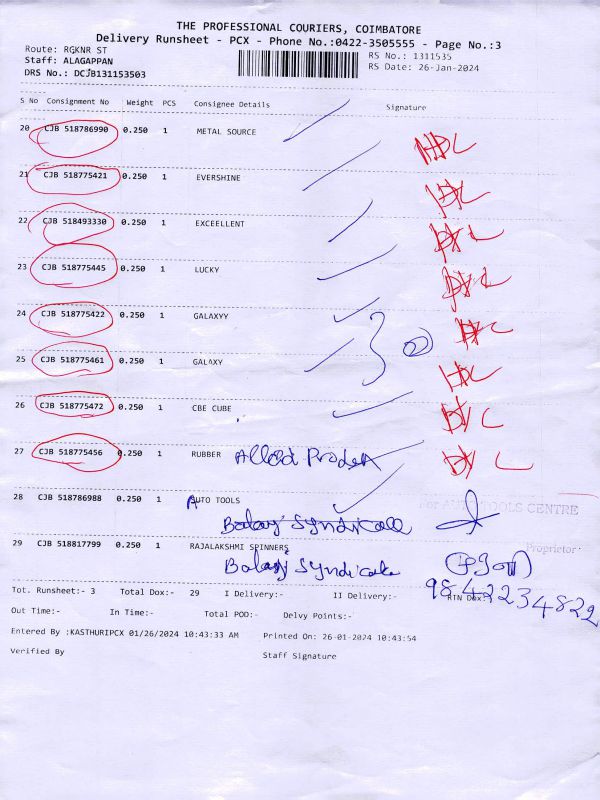 THE PROFESSIONAL COURIERS, COIMBATORE
Delivery Runsheet - PCX - Phone No.:0422-3505555 - Page No.:3
Route: RGKNR ST
RS No.: 1311535
Staff: ALAGAPPAN
RS Date: 26-Jan-2024
DRS No.: DCJB131153503
S No Consignment No Weight PCS Consignee Details Signature
20 CJB 518786990 0.250 1 METAL SOURCE
21 CJB 518775421 0.250 1 EVERSHINE
22 CJB 518493330 0.250 1 EXCEELLENT
23 CJB 518775445 0.250 1 LUCKY
24 CJB 518775422 0.250 1 GALAXYY
25 CJB 518775461 0.250 1 GALAXY
26 CJB 518775472 0.250 1 CBE CUBE
27 CJB 518775456 0.250 1 RUBBER Allied
28 CJB 518786988 0.250 1 AUTO TOOLS
For AUTO TOOLS CENTRE
Balaji Syndicate
Proprietor
29 CJB 518817799 0.250 1 RAJALAKSHMI SPINNERS
Balaji Syndicate
9842234822
Tot. Runsheet:- 3 Total Dox:- 29 I Delivery:- II Delivery:- RTN Dox:-
Out Time:- In Time:- Total POD:- Delvy Points:-
Entered By :KASTHURIPCX 01/26/2024 10:43:33 AM Printed On: 26-01-2024 10:43:54
Verified By Staff Signature